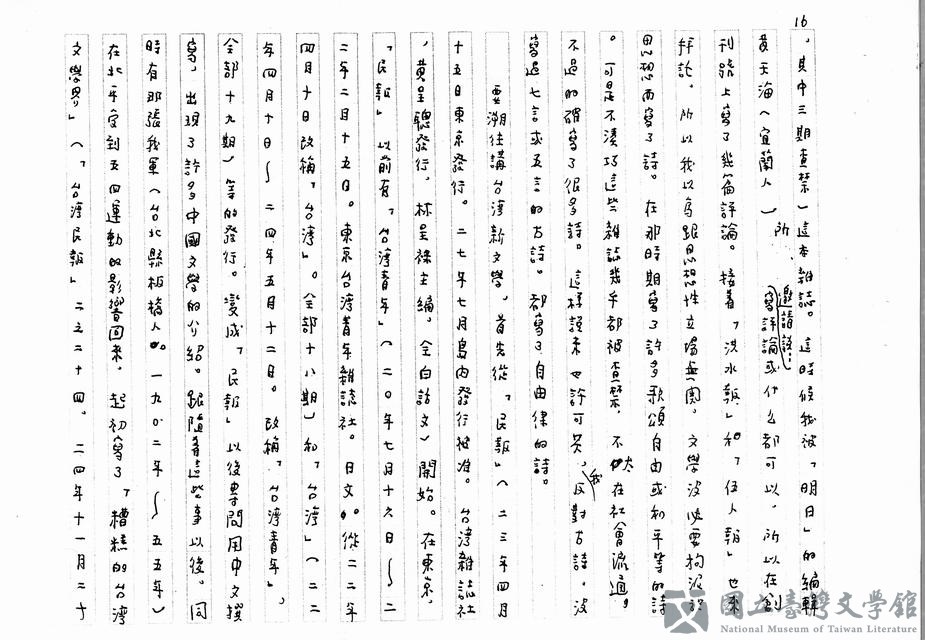 16
，其中三期查禁）這本雜誌。這時候我被「明日」的編輯
黃天海（宜蘭人）所邀請說：寫評論或什么都可以，所以在創
刊號上寫了幾篇評論。接着「洪水報」和「伍人報」也來
拜託。所以我以為跟思想性立場無関。文學沒必要拘泥於
思想而寫了詩。在那時期寫了許多歌頌自由或和平等的詩
。可是不湊巧這些雜誌幾乎都被查禁，不大在社會流通。
不過的確寫了很多詩。這樣說來也許可笑，我反對古詩，沒
寫過七言或五言的古詩。都寫了自由律的詩。
要溯往講台湾新文學，首先從「民報」（二三年四月
十五日東京發行。二七年七月島內發行批准。台湾雜誌社
，黃呈聰發行，林呈祿主編，全白話文）開始。在東京，
「民報」以前有「台湾青年」（二０年七月十六日～二
二年二月十五日。東京台湾青年雜誌社。日文。從二二年
四月十日改稱「台湾」。全部十八期）和「台湾」（二二
年四月十日～二四年五月十二日。改稱「台湾青年」，
全部十九期）等的發行。變成「民報」以後專門用中文撰
寫，出現了許多中國文學的介紹。跟隨着這些事以後，同
時有那張我軍（台北縣板橋人。一九０二年～五五年）
在北平受到五四運動的影響回來，起初寫了「糟糕的台湾
文學界」（「台湾民報」二之二十四。二四年十一月二十
國立臺灣文學館
National Museum of Taiwan Literature